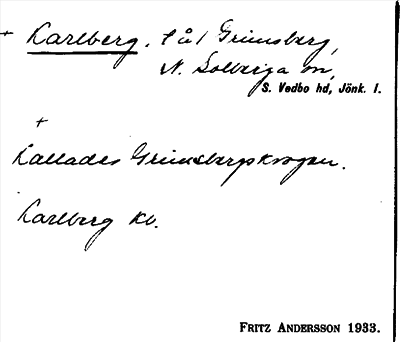 + Karlberg, t å / Grimsberg,
N. Solberga sn,
S. Vedbo hd, Jönk. l.
+
Kallades Grimsbergskrogen.
Karlberg Kb.
FRITZ ANDERSSON 1933.